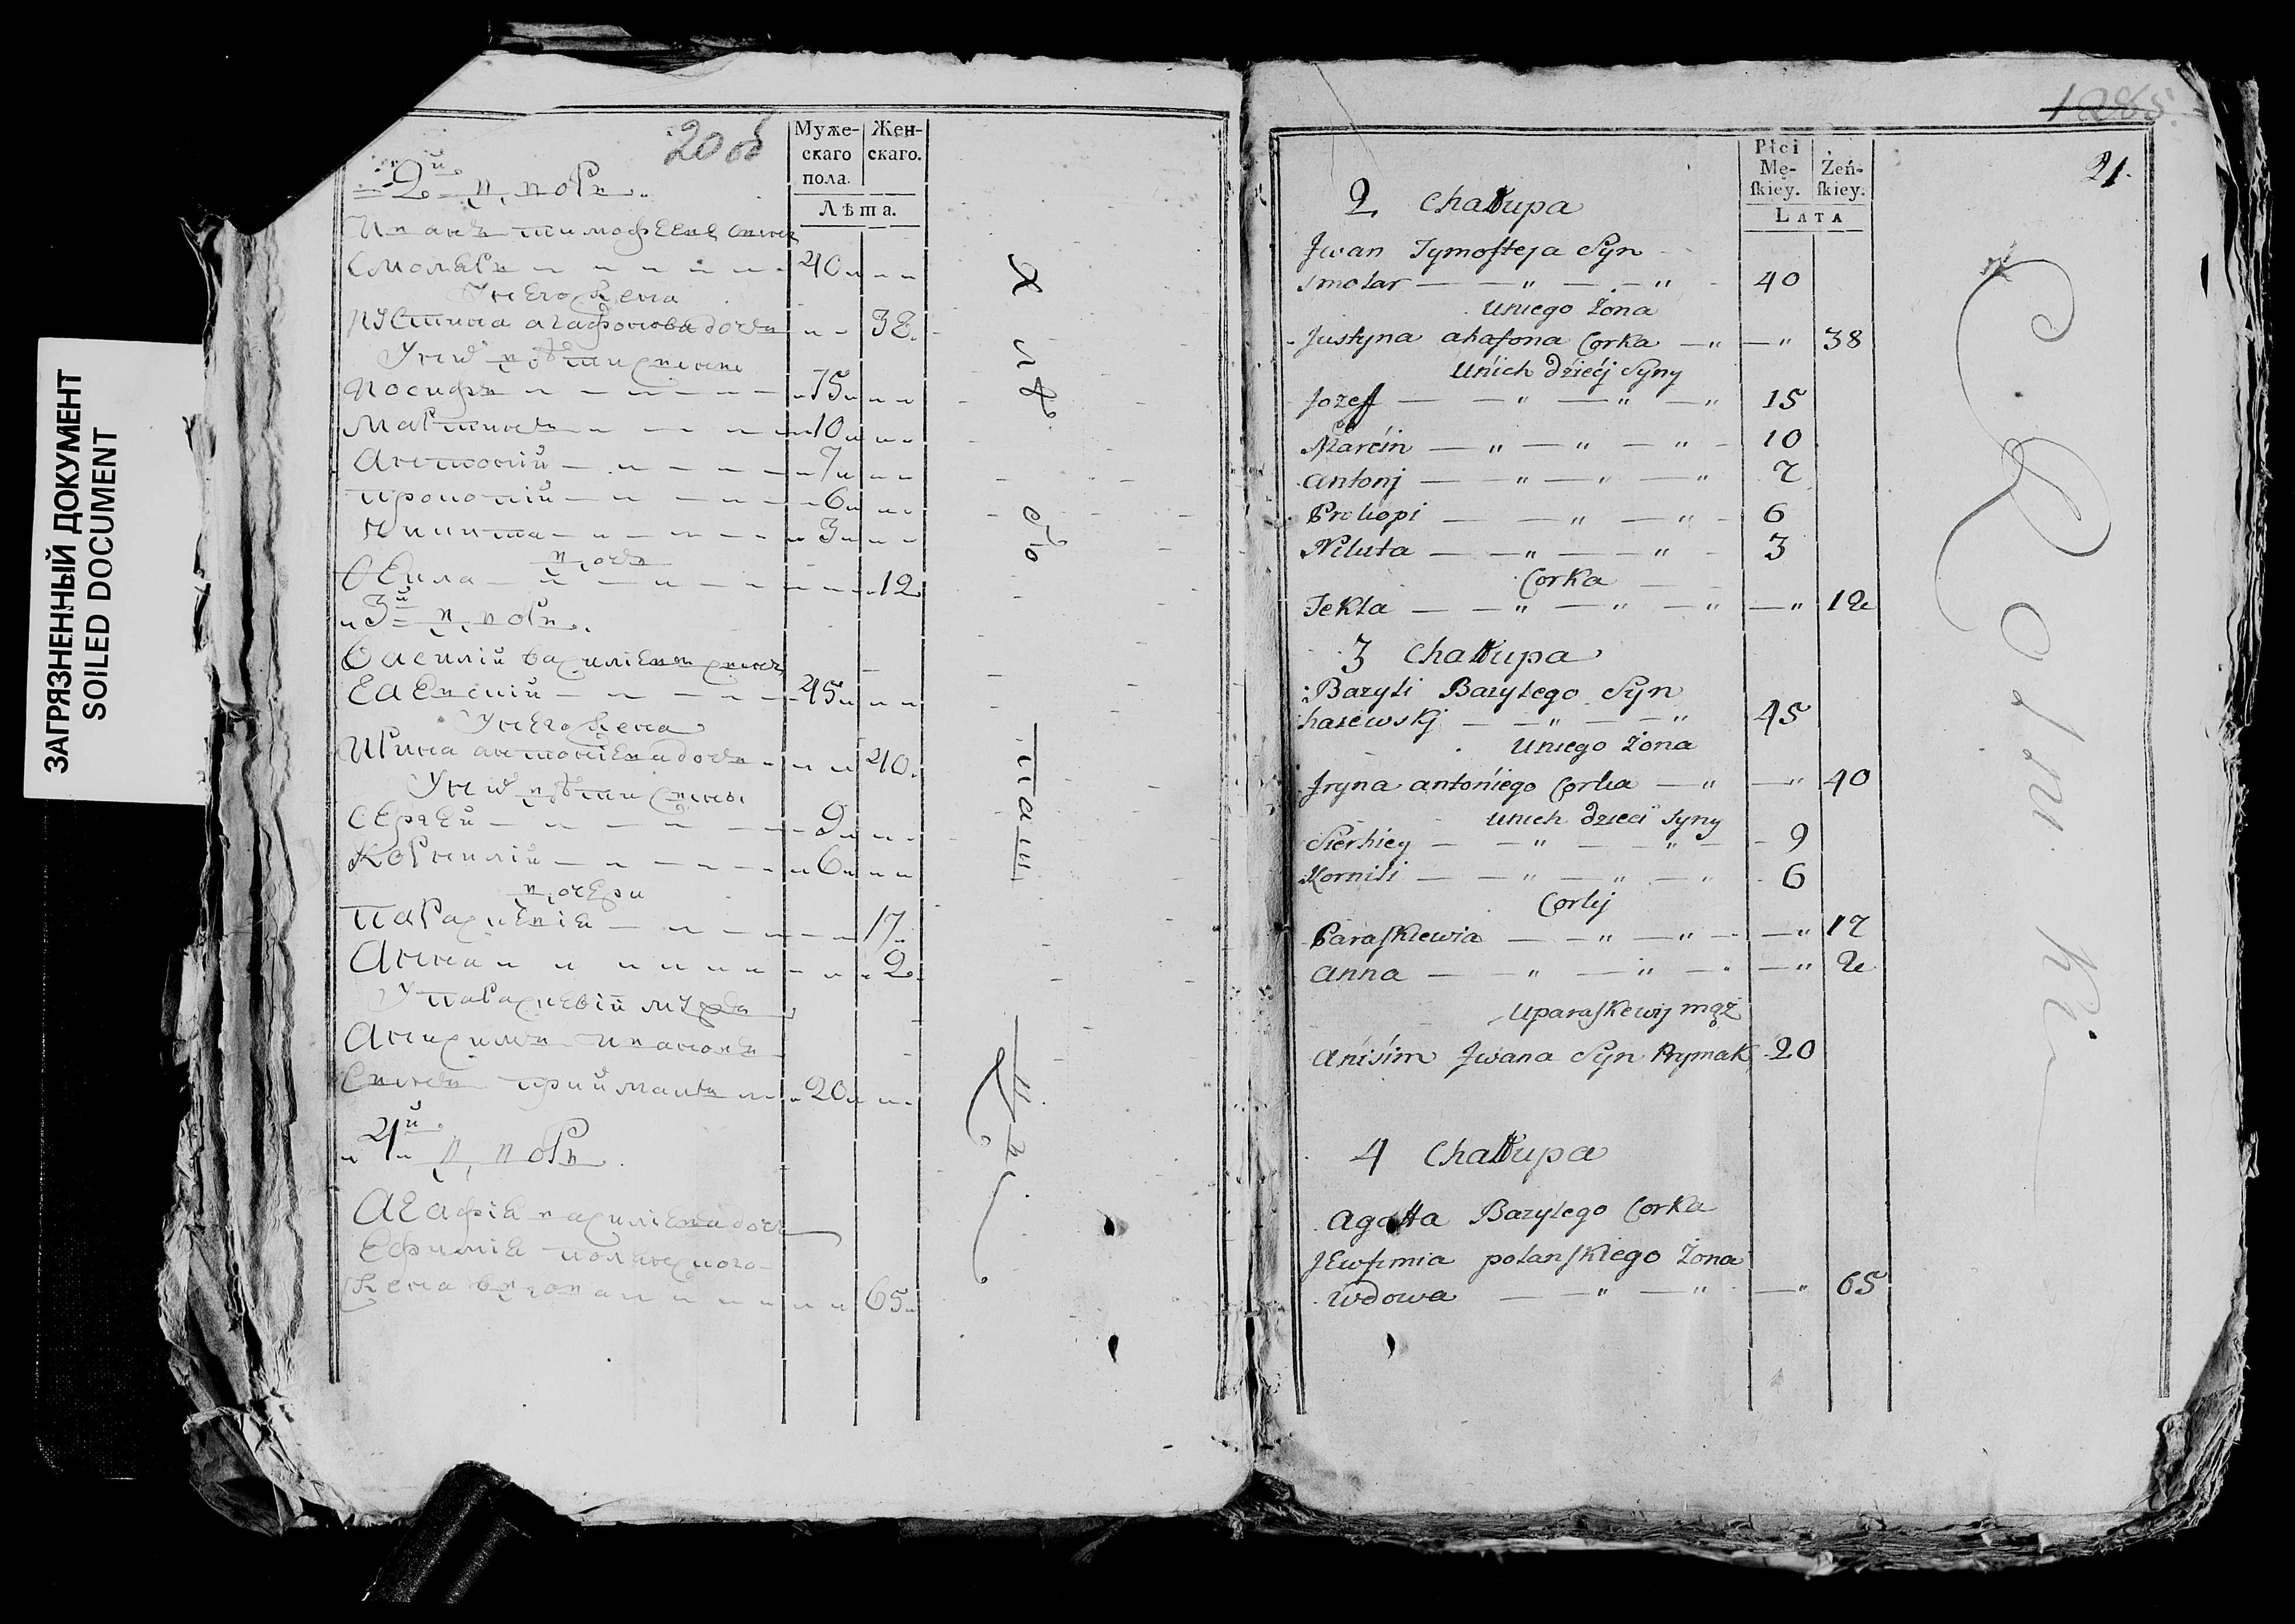 ЗАГРЯЗНЕННЫЙ ДОКУМЕНТ
SOILED DOCUMENT
20 об
Муже-
скаго
пола.
Жен-
скаго.
Лѣта.
2й дворъ
Иванъ тимофеевъ сынъ
смоляръ 40
У него жена
Иустина агафонова дочь 38
У них дѣти сыны
Иосифъ 15
Мартинъ 10
Антоній 7
Прокопій 6
Никита 3
дочь
12
3й дворъ
Василій василіевъ сынъ
45
У него жена
Ирина антоніева дочь 40
У них дѣти сыны
Сергей 9
Корнилій 6
дочери
Параскевія 17
Анна 2
У Параскевіи мужъ
Анисимъ Ивановъ
Сынъ приймакъ 20
4й дворъ
Агафія василіева дочь
Ефимія полянскаго
жена вдова 65
1285
21.
Płci
Mę-
ſkiey.
Żeń-
ſkiey.
LATA
2 Chałłupa
Jwan Tymofteja Syn
Smolar 40
Uniego Żona
Justyna ahafona Corka 38
Unich dziećj Syny
Jozeff 15
Marćin 10
Antonj 7
Prokopi 6
Nikita 3
Corka
Tekla 12
3 Chałłupa
Bazyli Bazylego Syn
45
Uniego Żona
Jryna antoniego Corka 40
Unich dzieci Syny
Sierhiey 9
Kornili 6
Corkj
Paraſkiewia 17
Anna 2
Uparaſkewij mąż
Anisim Jwana Syn Prymak 20
4 Chałłupa
Agatta Bazylego Corka
JEwfimia polanſkiego Żona
Wdowa 65